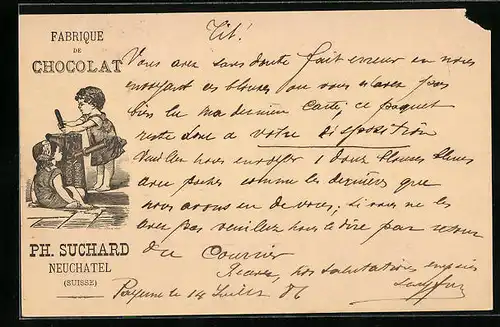 FABRIQUE
DE
CHOCOLAT
PH. SUCHARD
NEUCHATEL
(SUISSE)
Tit!
Vous avez sans doute fait erreur en nous
envoyant ces blouses ou vous n'avez pas
bien lu ma dernière Carte, ce paquet
reste donc a votre disposition
Veuillez nous envoyer 1 douz blouses bleues
avec poches comme les dernières que
nous avons eu de vous, si vous ne les
avez pas veuillez nous le dire par retour
du Courrier
Recevez, nos salutations empressées
Payerne le 14 Juillet 86